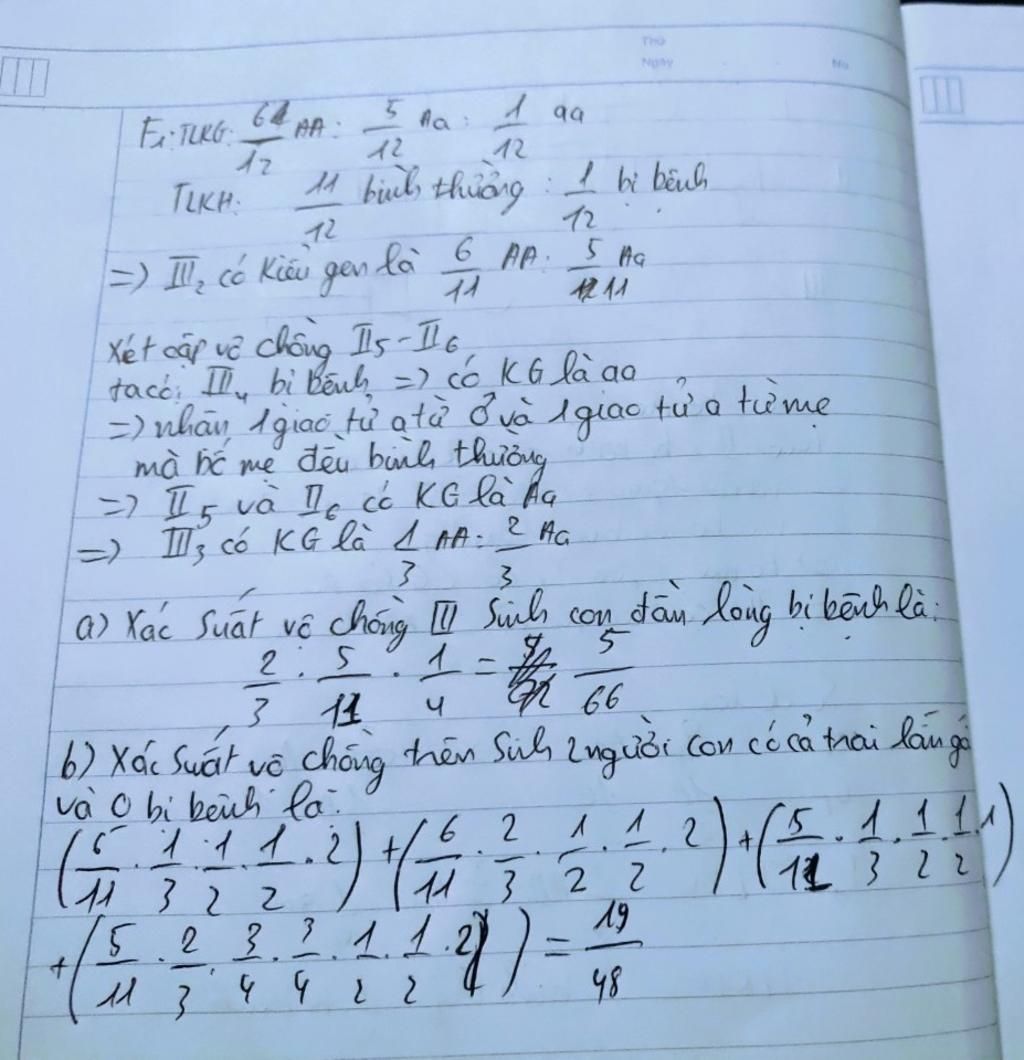 Thứ
Ngày No
F₁: TLKG: 6/12 AA : 5/12 Aa : 1/12 aa
TLKH: 11/12 bình thường : 1/12 bị bệnh
=) III₂ có kiểu gen là 6/11 AA : 5/11 Aa
Xét cặp vợ chồng II₅ - II₆
ta có: III₄ bị bệnh => có KG là aa
=) nhận 1 giao tử a từ ♂ và 1 giao tử a từ mẹ
mà bố mẹ đều bình thường
=) II₅ và II₆ có KG là Aa
=) III₃ có KG là 1/3 AA : 2/3 Aa
a) Xác suất vợ chồng III sinh con đầu lòng bị bệnh là:
2/3 . 5/11 . 1/4 = 5/66
b) Xác suất vợ chồng trên sinh 2 người con có cả trai lẫn gá
và 0 bị bệnh là:
(6/11 . 1/3 . 1/2 . 1/2 . 2) + (6/11 . 2/3 . 1/2 . 1/2 . 2) + (5/11 . 1/3 . 1/2 . 1/2 . 1)
+ (5/11 . 2/3 . 3/4 . 3/4 . 1/2 . 1/2 . 2) = 19/48